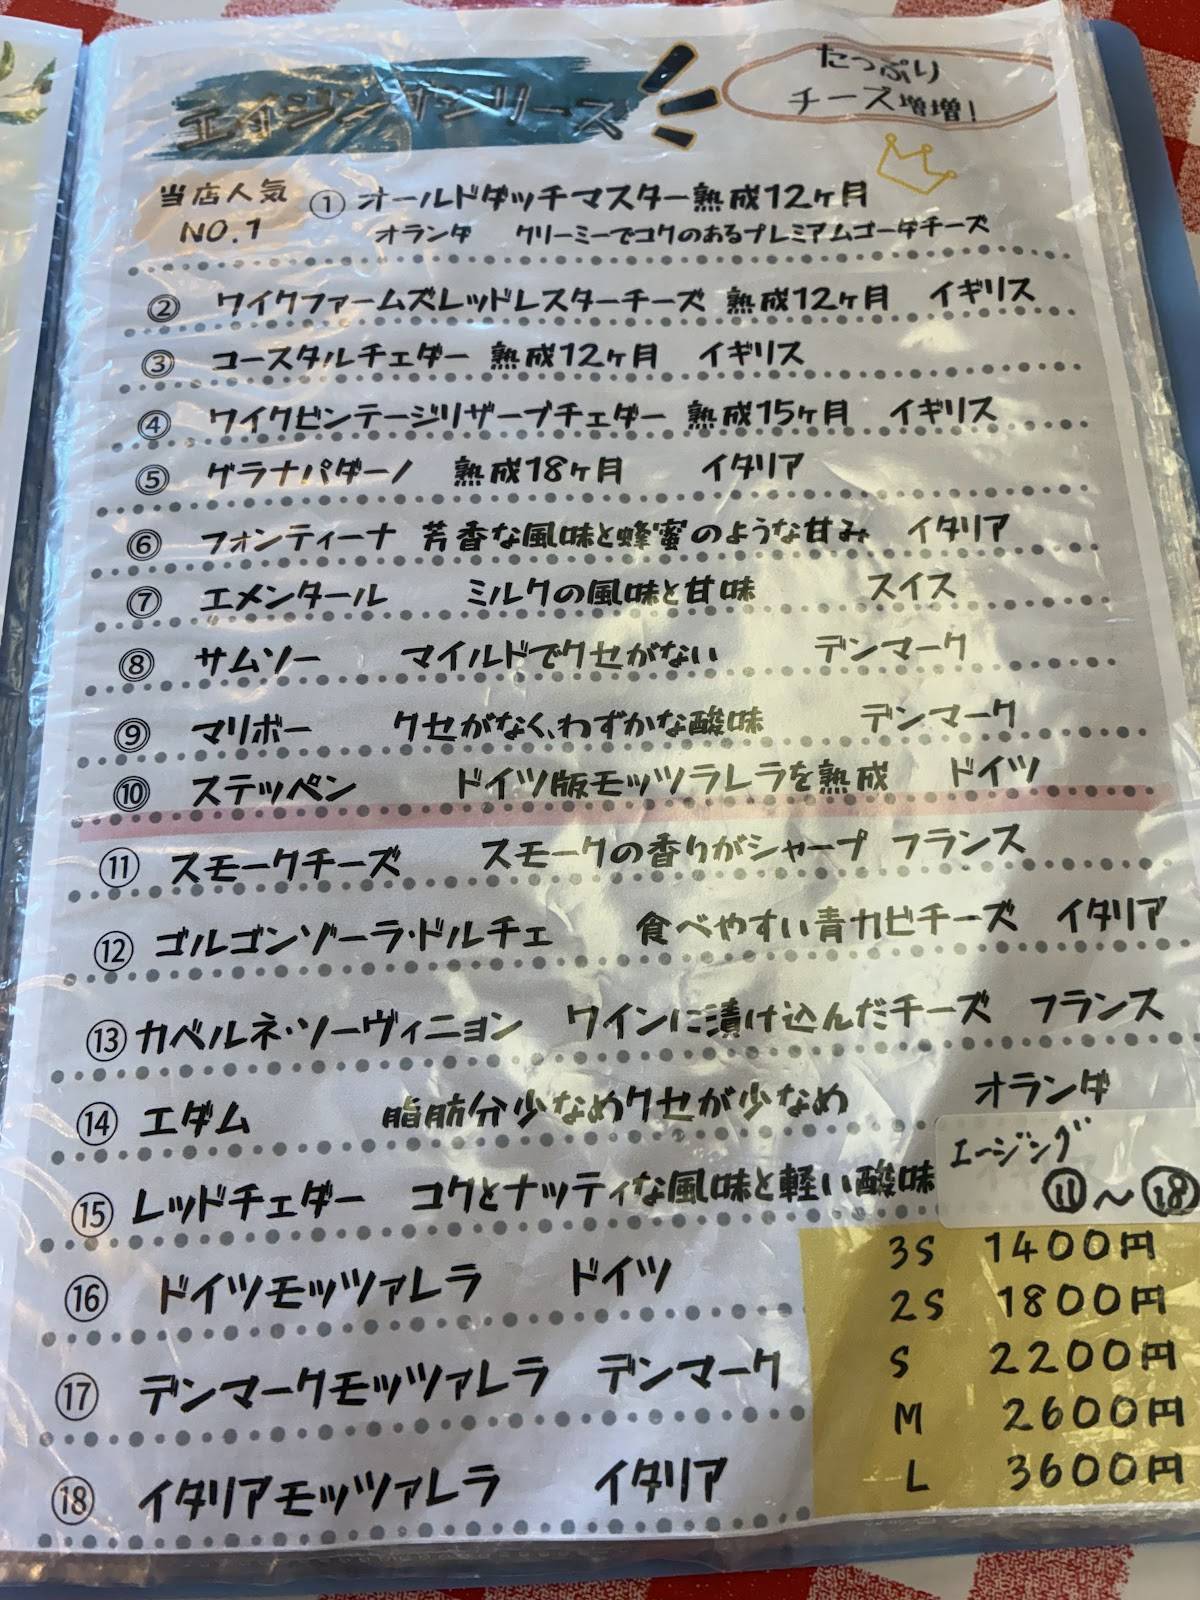 エイジングシリーズ
たっぷり
チーズ増増!
当店人気
NO.1
① オールドダッチマスター熟成12ヶ月
オランダ クリーミーでコクのあるプレミアムゴーダチーズ
② ワイクファームズレッドレスターチーズ 熟成12ヶ月 イギリス
③ コースタルチェダー 熟成12ヶ月 イギリス
④ ワイクビンテージリザーブチェダー 熟成15ヶ月 イギリス
⑤ グラナパダーノ 熟成18ヶ月 イタリア
⑥ フォンティーナ 芳香な風味と蜂蜜のような甘み イタリア
⑦ エメンタール ミルクの風味と甘味 スイス
⑧ サムソー マイルドでクセがない デンマーク
⑨ マリボー クセがなく、わずかな酸味 デンマーク
⑩ ステッペン ドイツ版モッツラレラを熟成 ドイツ
⑪ スモークチーズ スモークの香りがシャープ フランス
⑫ ゴルゴンゾーラ・ドルチェ 食べやすい青カビチーズ イタリア
⑬ カベルネ・ソーヴィニヨン ワインに漬け込んだチーズ フランス
⑭ エダム 脂肪分少なめクセが少なめ オランダ
⑮ レッドチェダー コクとナッティな風味と軽い酸味
⑯ ドイツモッツァレラ ドイツ
⑰ デンマークモッツァレラ デンマーク
⑱ イタリアモッツァレラ イタリア
エージング
⑪〜⑱
3S 1400円
2S 1800円
S 2200円
M 2600円
L 3600円